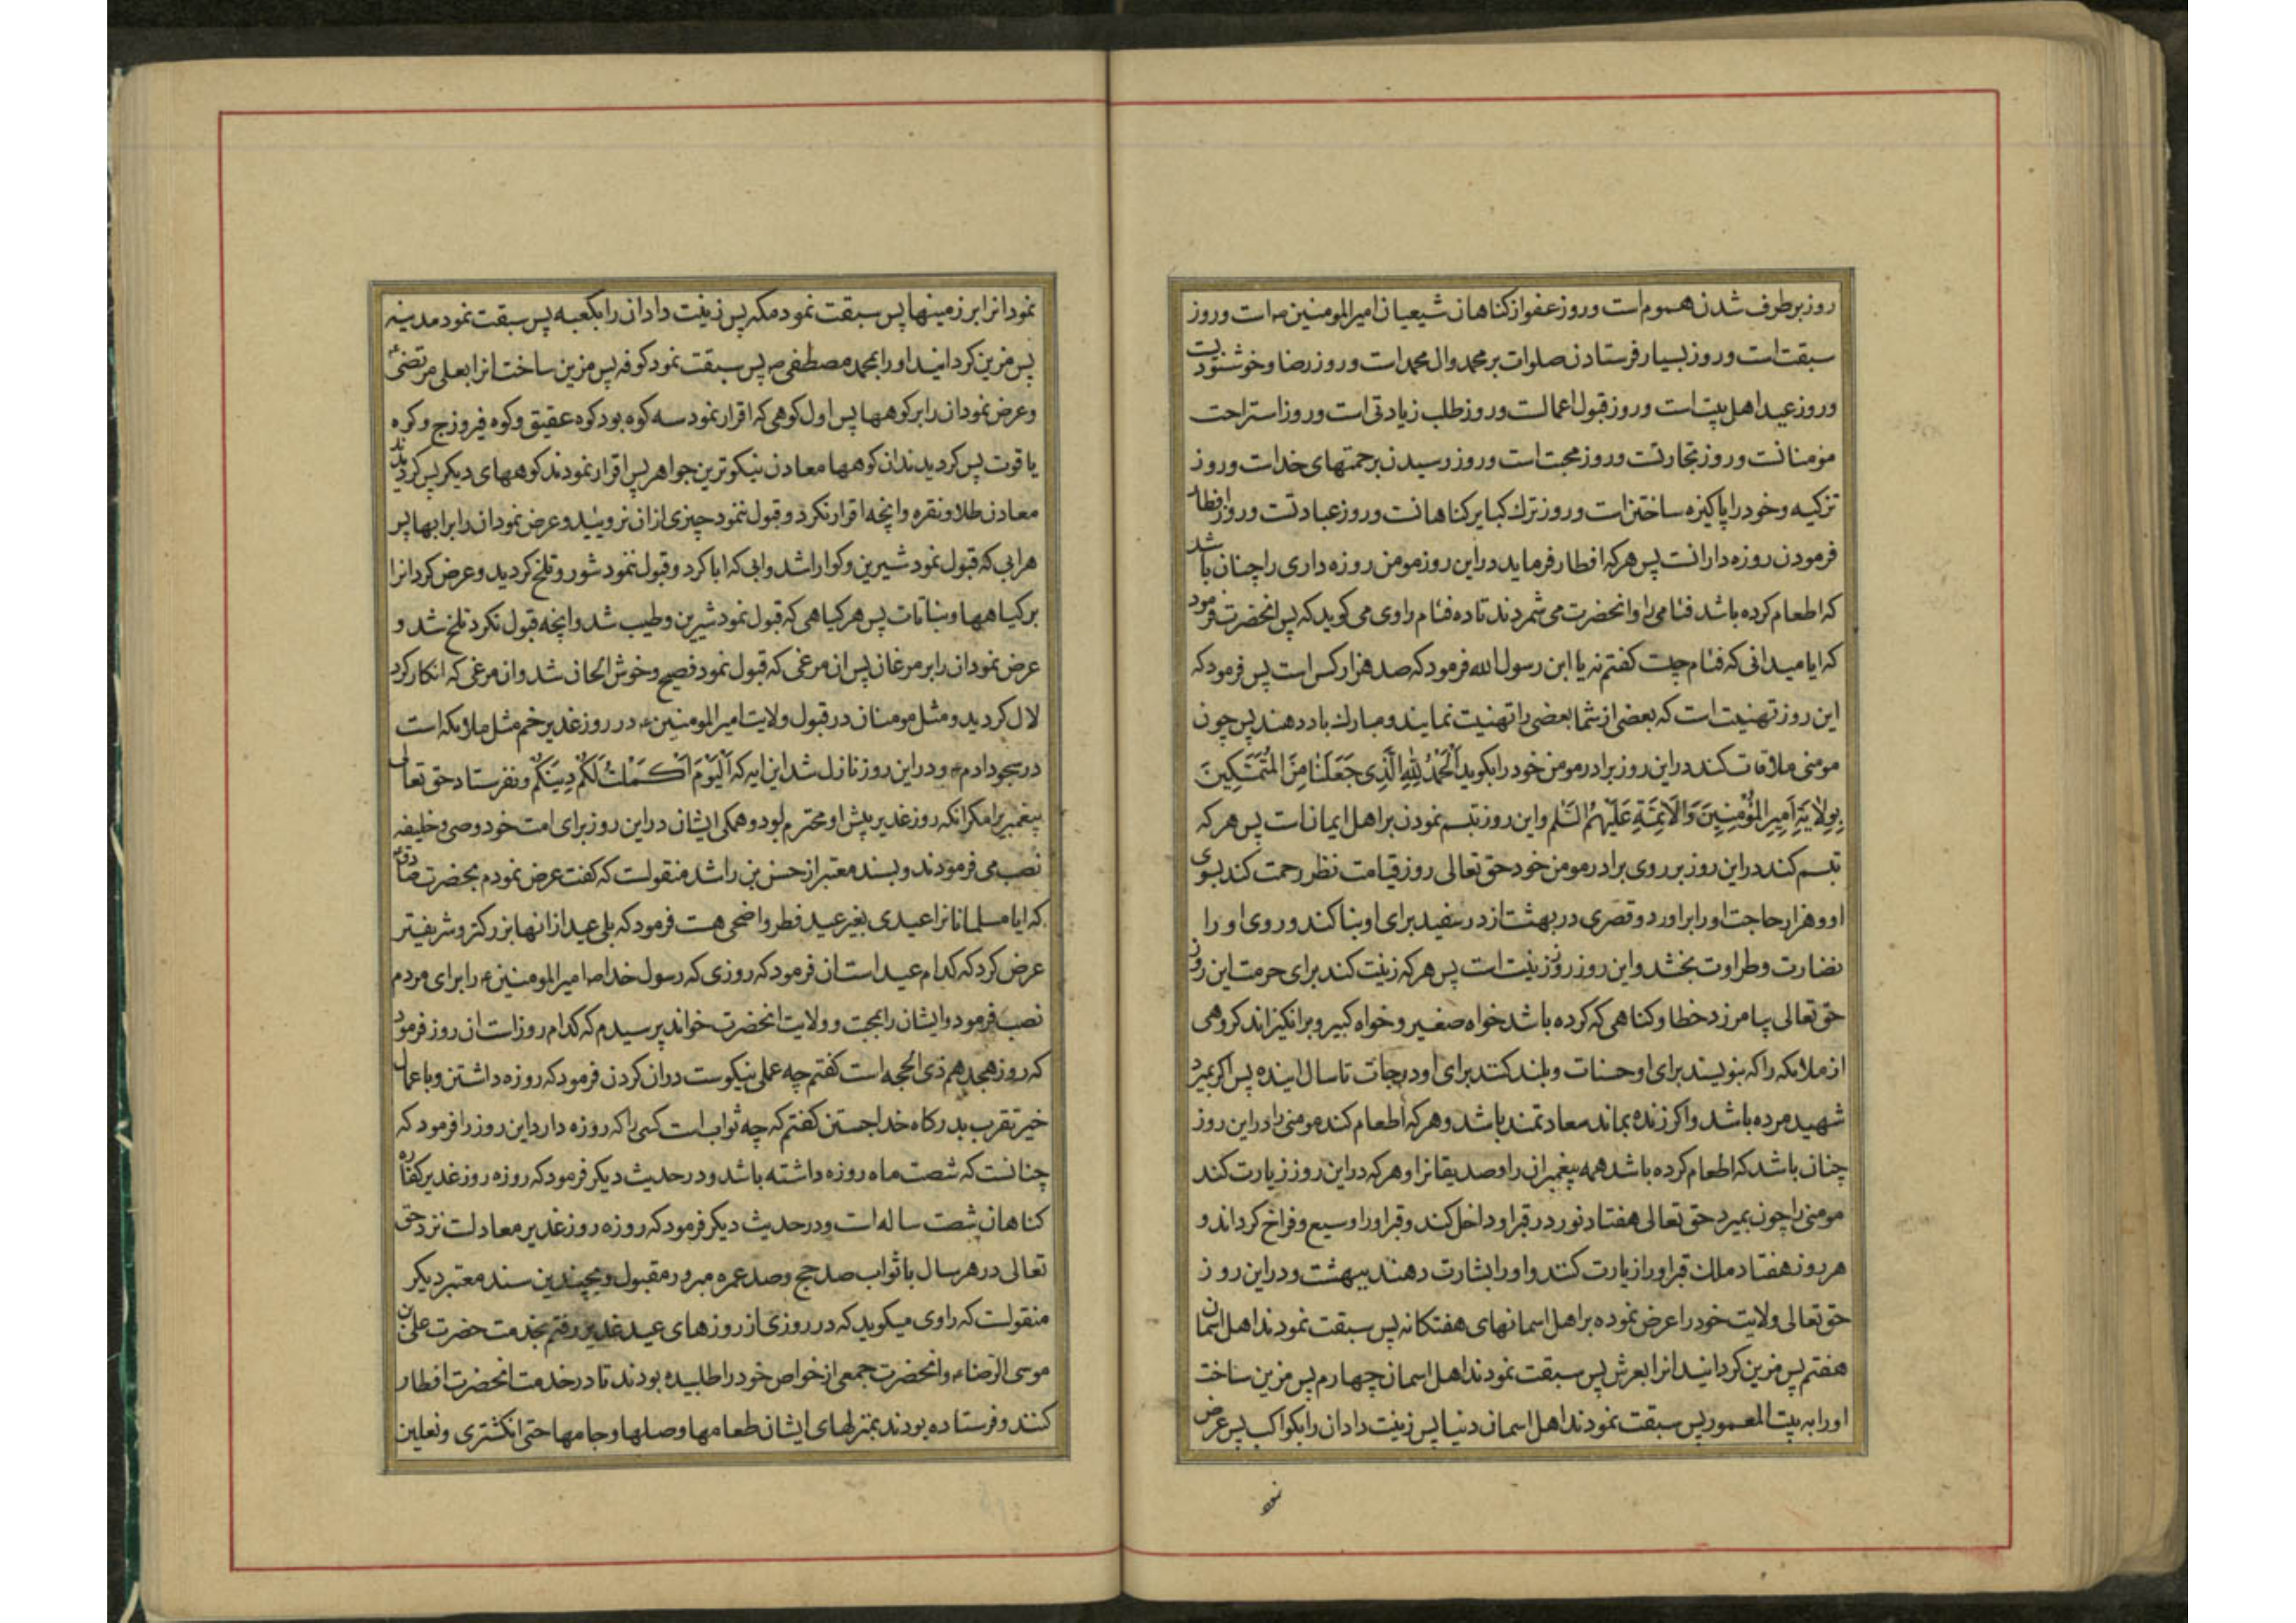 روز برطرف شدن هموم است و روز عفو از کناهان شیعیان امیرالمومنین ع است و روز
سبقت است و روز بسیار فرستادن صلوات بر محمد وال محمد است و روز رضا و خوشنودیت
و روز عید اهل بیت است و روز قبول اعمالست و روز طلب زیادتی است و روز استراحت
مؤمنانست و روز تجارتست و روز محبت است و روز رسیدن برحمتهای خداست و روز
تزکیه و خود را پاکیزه ساختن است و روز ترك کبایر کناهانست و روز عبادتست و روز افطار
فرمودن روزه دارانست پس هر که افطار فرماید در این روز مومن روزه داری را چنان باشد
که اطعام کرده باشد فئامی را وانحضرت می شمردند تا ده فئام راوی می کوید که پس انحضرت فرمود
که ایا میدانی که فئام چیست کفتم نه یا ابن رسول الله فرمود که صد هزار کس است پس فرمود که
این روز تهنیت است که بعضی از شما بعضی را تهنیت نمایند و مبارك باد دهند پس چون
مومنی ملاقات کند در این روز برادر مومن خود را بکوید اَلْحَمْدُ لِلّٰهِ الَّذِی جَعَلَنٰا مِنَ الْمُتَمَسِّکِینَ
بِوِلاٰیَةِ اَمِیرِ الْمُؤْمِنِینَ وَالْاَئِمَّةِ عَلَیْهِمُ السَّلٰم و این روز تبسم نمودن بر اهل ایمانست پس هر که
تبسم کند در این روز بر روی برادر مومن خود حق تعالی روز قیامت نظر رحمت کند بسوی
او و هزار حاجت او را براورد و قصری در بهشت از در سفید برای او بنا کند و روی او را
نضارت و طراوت بخشد و این روز روز زینت است پس هر که زینت کند برای حرمت این روز
حق تعالی بیامرزد خطا و کناهی که کرده باشد خواه صغیر و خواه کبیر و برانکیزاند کروهی
از ملائکه را که بنویسند برای او حسنات و بلند کنند برای او درجات تا سال اینده پس اکر بمیرد
شهید مرده باشد و اکر زنده بماند سعادتمند باشد و هر که اطعام کند مومنی را در این روز
چنان باشد که اطعام کرده باشد همه پیغمبران را و صدیقانرا و هر که در این روز زیارت کند
مومنی را چون بمیرد حق تعالی هفتاد نور در قبر او داخل کند و قبر او را وسیع و فراخ کرداند و
هر روز هفتاد ملك قبر او را زیارت کنند و او را بشارت دهند ببهشت و در این روز
حق تعالی ولایت خود را عرض نموده بر اهل اسمانهای هفتکانه پس سبقت نمودند اهل اسمان
هفتم پس مزین کردانید انرا بعرش پس سبقت نمودند اهل اسمان چهارم پس مزین ساخت
او را به بیت المعمور پس سبقت نمودند اهل اسمان دنیا پس زینت داد ان را بکواکب پس عرض
نمود
نمود انرا بر زمینها پس سبقت نمود مکه پس زینت داد ان را بکعبه پس سبقت نمود مدینه
پس مزین کردانید او را بمحمد مصطفی ص پس سبقت نمود کوفه پس مزین ساخت انرا بعلی مرتضی ع
و عرض نمود ان را بر کوهها پس اول کوهی که اقرار نمود سه کوه بود کوه عقیق و کوه فیروزج و کوه
یاقوت پس کردیدند ان کوهها معادن نیکوترین جواهر پس اقرار نمودند کوههای دیکر پس کردیدند
معادن طلا و نقره و انچه اقرار نکرد و قبول ننمود چیزی از ان نرویید و عرض نمود ان را بر ابها پس
هر ابی که قبول نمود شیرین و کوارا شد و ابی که ابا کرد و قبول ننمود شور و تلخ کردید و عرض کرد انرا
بر کیاهها و نباتات پس هر کیاهی که قبول نمود شیرین و طیب شد و انچه قبول نکرد تلخ شد و
عرض نمود ان را بر مرغان پس ان مرغی که قبول نمود فصیح و خوش الحان شد و ان مرغی که انکار کرد
لال کردید و مثل مومنان در قبول ولایت امیرالمومنین ع در روز غدیر خم مثل ملائکه است
در سجود ادم ع و در این روز نازل شد این ایه که اَلْیَوْمَ اَکْمَلْتُ لَکُمْ دِینَکُمْ و نفرستاد حق تعالی
پیغمبری را مکر انکه روز غدیر پیش او محترم بود و همکی ایشان در این روز برای امت خود وصی و خلیفه
نصب می فرمودند و بسند معتبر از حسن بن راشد منقولست که کفت عرض نمودم بحضرت صادق ع
که ایا مسلمانانرا عیدی بغیر عید فطر و اضحی هست فرمود که بلی عید از انها بزرکتر و شریفتر
عرض کرد که کدام عید است ان فرمود که روزی که رسول خدا ص امیرالمومنین ع را برای مردم
نصب فرمود و ایشان را بمحبت و ولایت انحضرت خواند پرسیدم که کدام روز است ان روز فرمود
که روز هجدهم ذی الحجه است کفتم چه عملی نیکوست در ان کردن فرمود که روزه داشتن و باعمال
خیر تقرب بدرکاه خدا جستن کفتم که چه ثواب است کسی را که روزه دارد این روز را فرمود که
چنانست که شصت ماه روزه داشته باشد و در حدیث دیکر فرمود که روزه روز غدیر کفاره
کناهان شصت ساله است و در حدیث دیکر فرمود که روزه روز غدیر معادلست نزد حق
تعالی در هر سال با ثواب صد حج و صد عمره مبرور مقبول و بچندین سند معتبر دیکر
منقولست که راوی میکوید که در روزی از روزهای عید غدیر رفتم بخدمت حضرت علی بن
موسی الرضا ع و انحضرت جمعی از خواص خود را طلبیده بودند تا در خدمت انحضرت افطار
کنند و فرستاده بودند بمنزلهای ایشان طعامها و صلها و جامها حتی انکشتری و نعلین